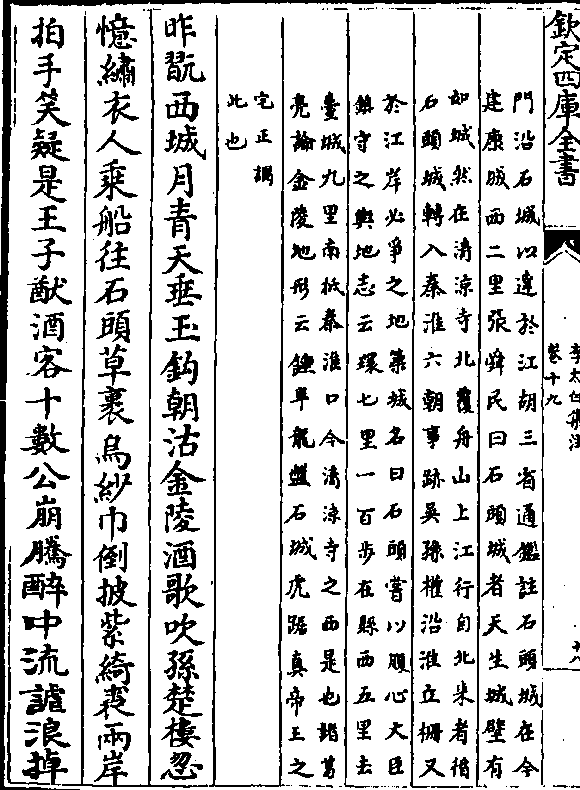 欽定四庫全書
李太白集注
卷十九
門沿石城以達於江胡三省通鑑註石頭城在今
建康城西二里張舜民曰石頭城者天生城壁有
如城然在清涼寺北覆舟山上江行自北来者循
石頭城轉入秦淮六朝事跡吳孫權沿淮立柵又
於江岸必爭之地築城名曰石頭嘗以腹心大臣
鎮守之輿地志云環七里一百步在縣西五里去
臺城九里南抵秦淮口今清涼寺之西是也諸葛
亮論金陵地形云鍾阜龍盤石城虎踞真帝王之
宅正謂
此也
昨翫西城月青天垂玉鈎朝沽金陵酒歌吹孫楚樓忽
憶繡衣人乘船往石頭草裹烏紗巾倒披紫綺裘兩岸
拍手笑疑是王子猷酒客十數公崩騰醉中流謔浪掉